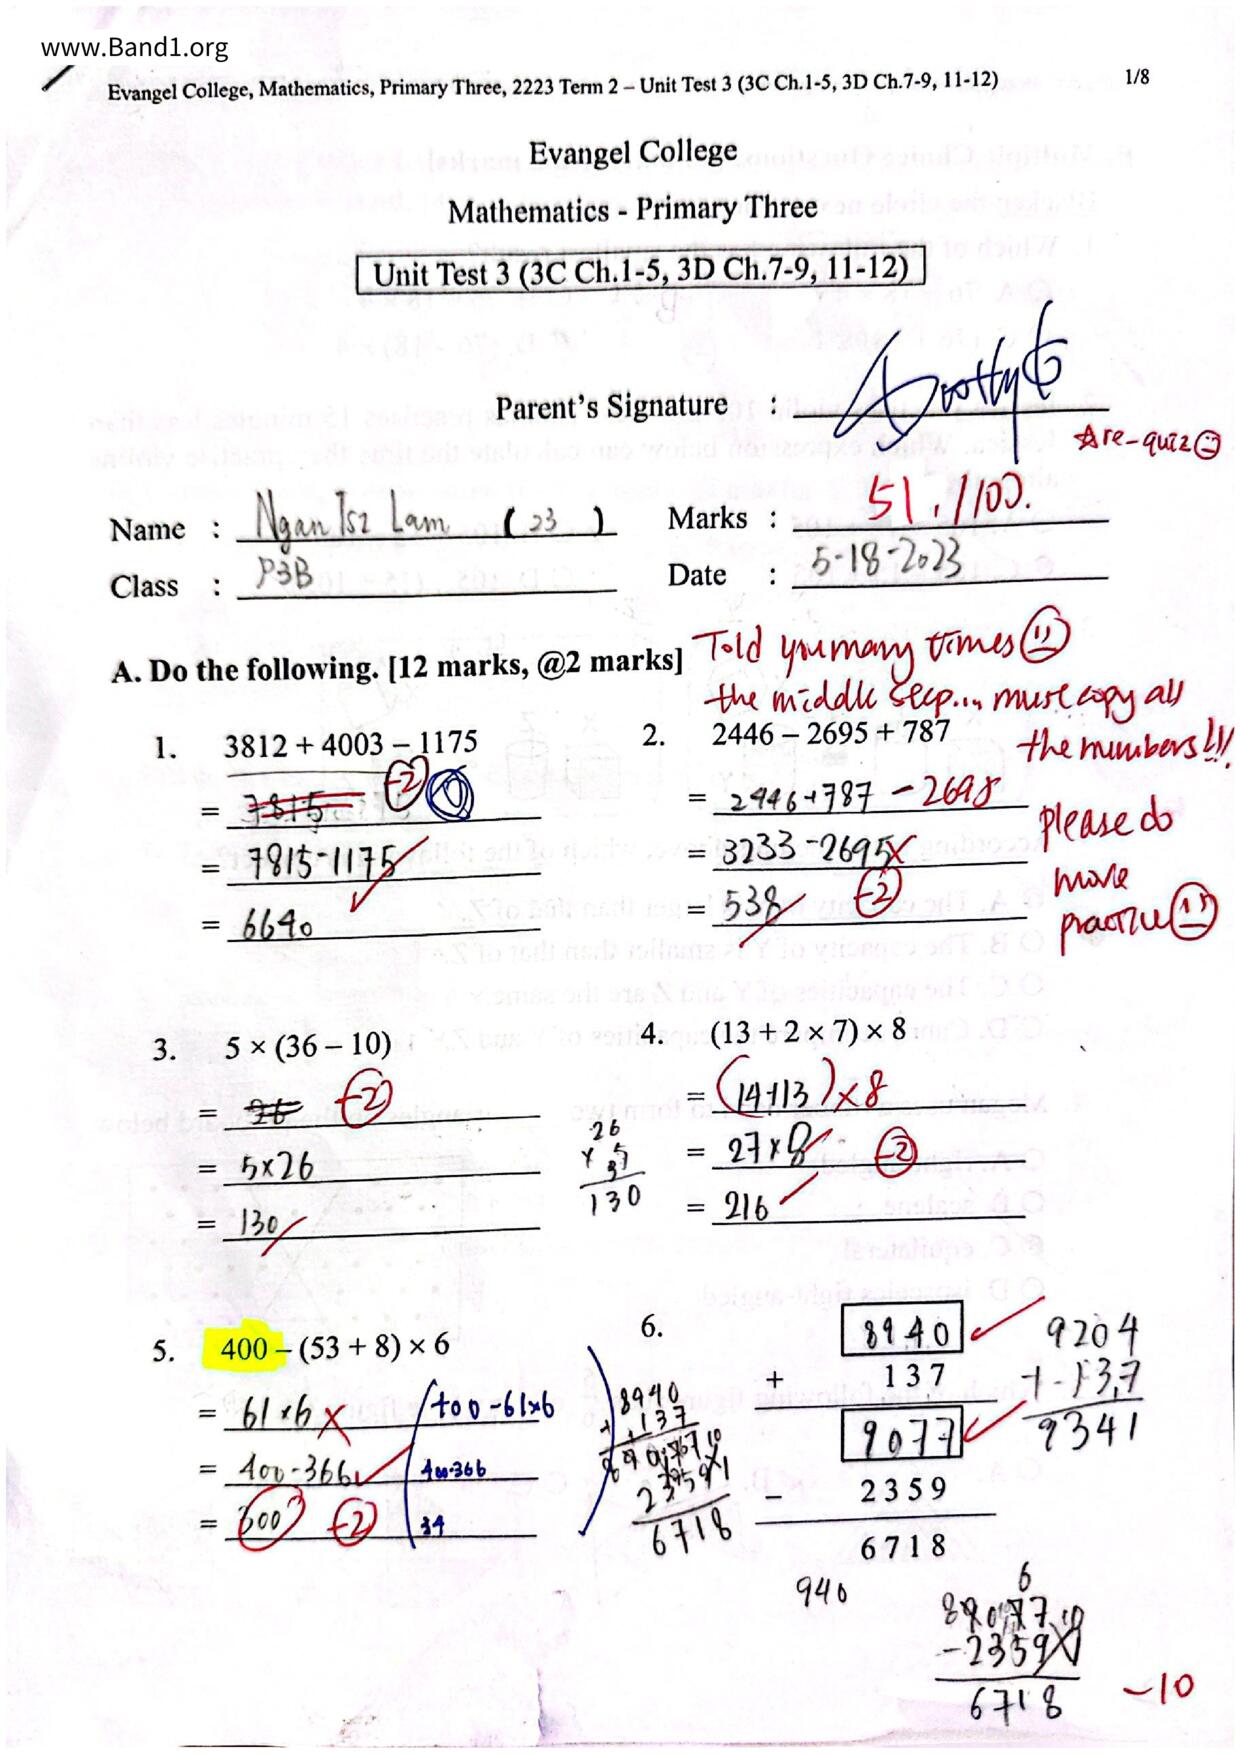 www.Band1.org
Evangel College, Mathematics, Primary Three, 2223 Term 2 – Unit Test 3 (3C Ch.1-5, 3D Ch.7-9, 11-12) 1/8
Evangel College
Mathematics - Primary Three
Unit Test 3 (3C Ch.1-5, 3D Ch.7-9, 11-12)
Parent's Signature :
re-quiz
Name : Ngan Tsz Lam (23) Marks : 51/100.
Class : P3B Date : 5-18-2023
A. Do the following. [12 marks, @2 marks]
Told you many times
the middle step... must copy all
the numbers!!!
please do
more
practice
1. 3812 + 4003 – 1175
= 7815 -2
= 7815-1175
= 6640
2. 2446 – 2695 + 787
= 2446+787 - 2698
= 3233-2695
= 538 -2
3. 5 × (36 – 10)
= 26 -2
= 5×26
= 130
26
× 5
130
4. (13 + 2 × 7) × 8
= (14+13) ×8
= 27×8 -2
= 216
5. 400 – (53 + 8) × 6
= 61×6 400-61×6
= 400-366 400-366
= 300 -2 34
6. 8940
+ 137
9077
– 2359
6718
8940
+ 137
6718
9204
+ 137
9341
940
9077
- 2359
6718
-10